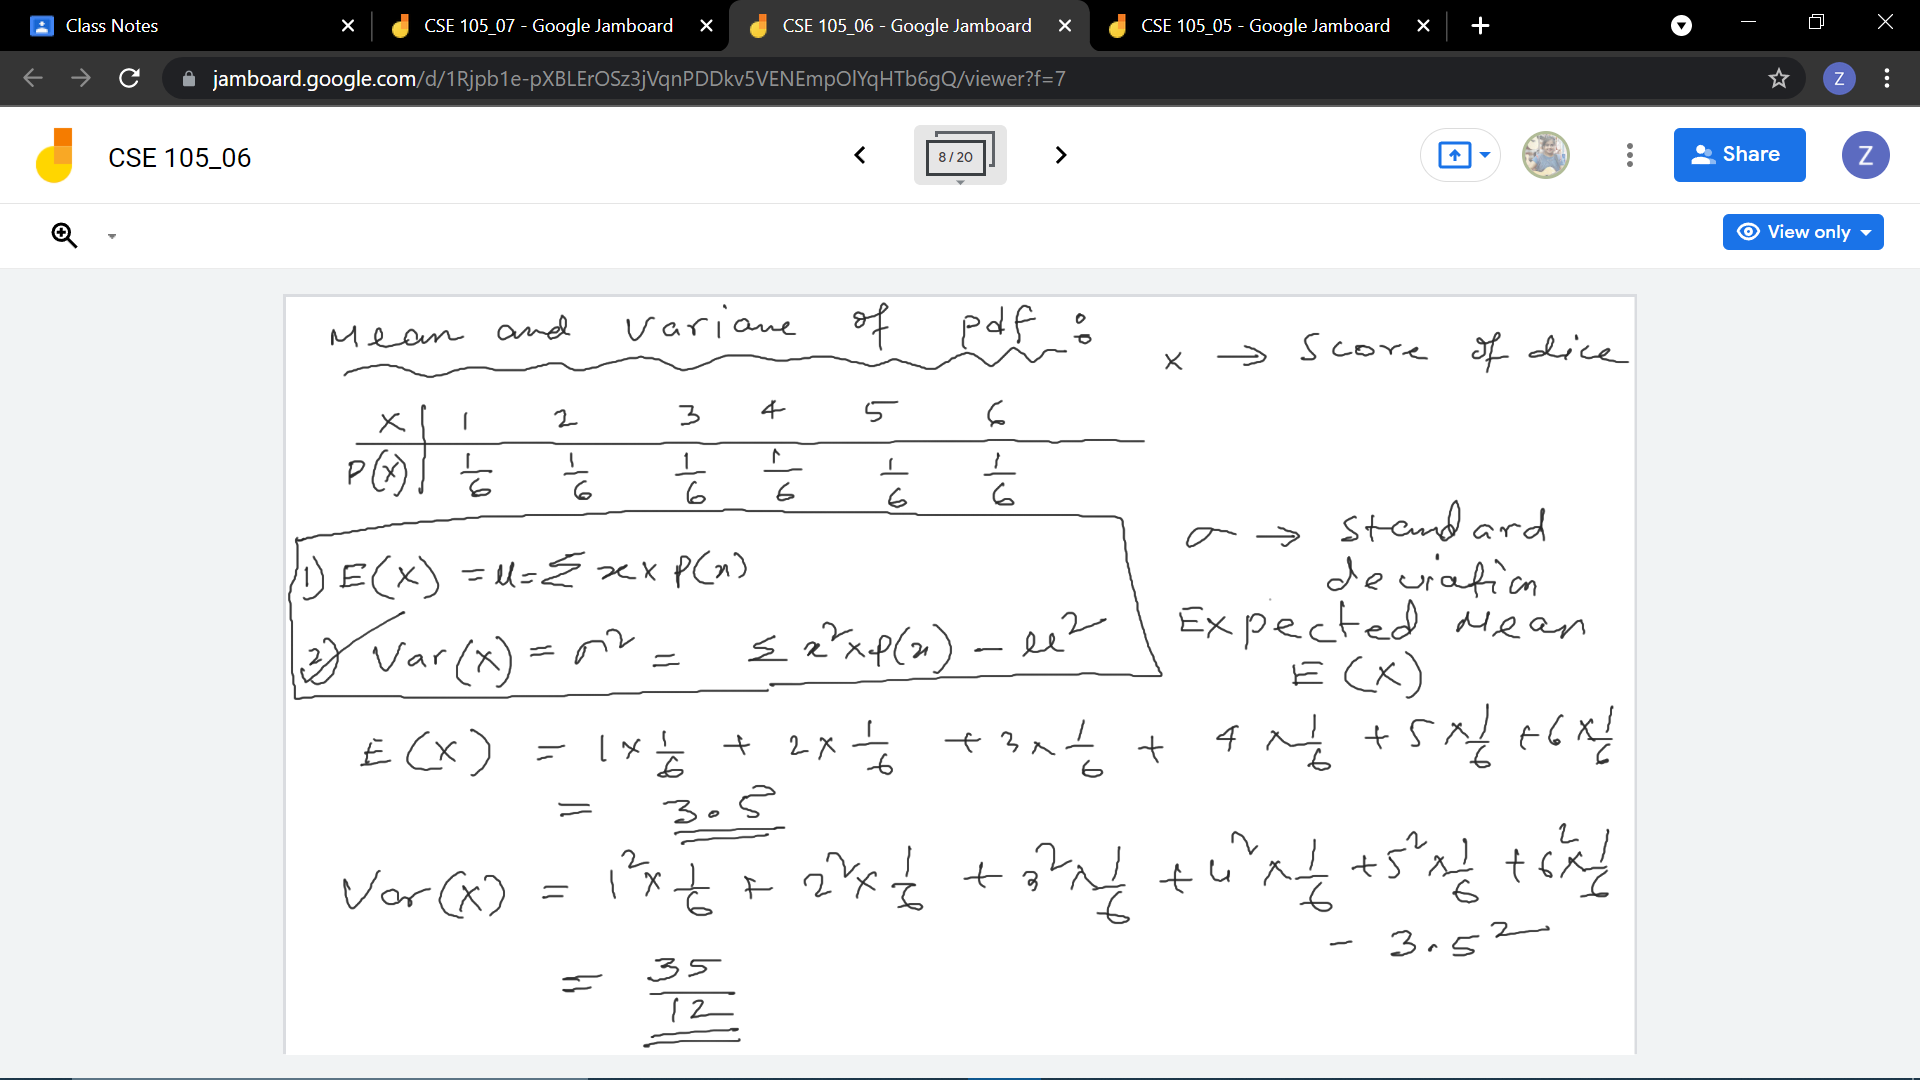 Class Notes
CSE 105_07 - Google Jamboard
CSE 105_06 - Google Jamboard
CSE 105_05 - Google Jamboard
jamboard.google.com/d/1Rjpb1e-pXBLErOSz3jVqnPDDkv5VENEmpOlYqHTb6gQ/viewer?f=7
Z
CSE 105_06
8 / 20
Share
Z
View only
Mean and Variane of pdf :
x → Score of dice
X | 1 2 3 4 5 6
P(X) | 1/6 1/6 1/6 1/6 1/6 1/6
σ → standard
deviation
1) E(X) = μ = Σ x × P(x)
2) Var(X) = σ² = Σ x² × P(x) - μ²
Expected Mean
E(X)
E(X) = 1 × 1/6 + 2 × 1/6 + 3 × 1/6 + 4 × 1/6 + 5 × 1/6 + 6 × 1/6
= 3.5
Var(X) = 1² × 1/6 + 2² × 1/6 + 3² × 1/6 + 4² × 1/6 + 5² × 1/6 + 6² × 1/6
- 3.5²
= 35/12